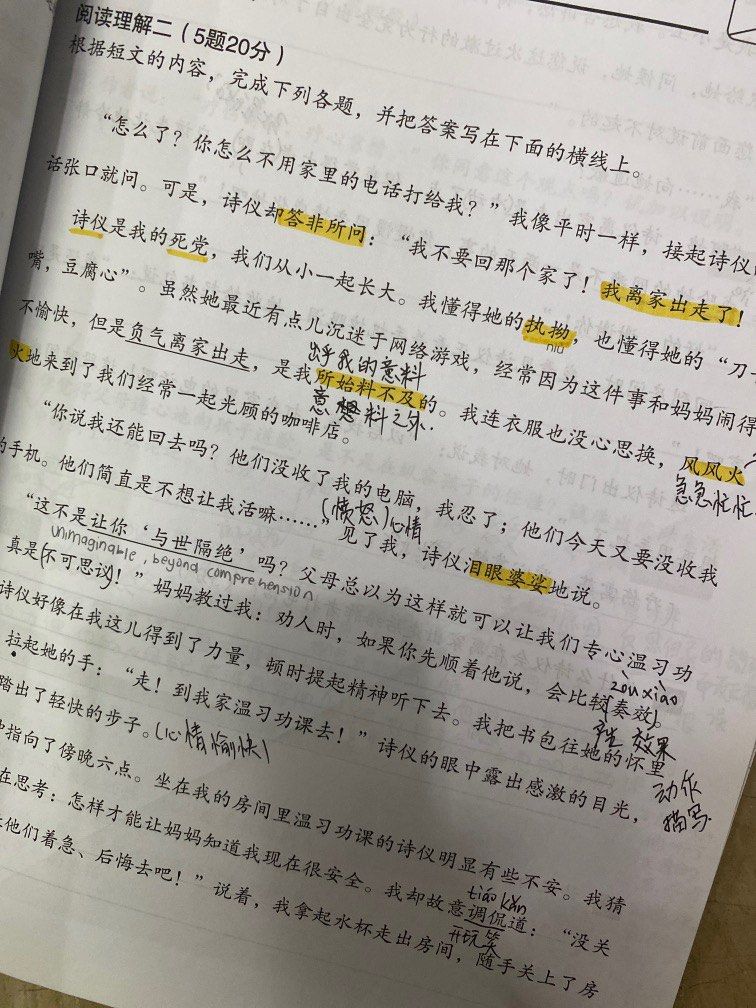 阅读理解二（5题20分）
根据短文的内容，完成下列各题，并把答案写在下面的横线上。
“怎么了？你怎么不用家里的电话打给我？”我像平时一样，接起诗仪
话张口就问。可是，诗仪却答非所问：“我不要回那个家了！我离家出走了！
诗仪是我的死党，我们从小一起长大。我懂得她的执拗，也懂得她的“刀
niù
嘴，豆腐心”。虽然她最近有点儿沉迷于网络游戏，经常因为这件事和妈妈闹得
出乎我的意料
不愉快，但是负气离家出走，是我所始料不及的。我连衣服也没心思换，风风火
意想料之外.
急急忙忙
火地来到了我们经常一起光顾的咖啡店。
“你说我还能回去吗？他们没收了我的电脑，我忍了；他们今天又要没收我
的手机。他们简直是不想让我活嘛……”见了我，诗仪泪眼婆娑地说。
(愤怒)心情
“这不是让你‘与世隔绝’吗？父母总以为这样就可以让我们专心温习功
unimaginable, beyond comprehension
真是(不可思议)！”妈妈教过我：劝人时，如果你先顺着他说，会比较(奏效)。
zòu xiào
效果
诗仪好像在我这儿得到了力量，顿时提起精神听下去。我把书包往她的怀里
拉起她的手：“走！到我家温习功课去！”诗仪的眼中露出感激的目光，
动作
描写
踏出了轻快的步子。(心情愉快)
指向了傍晚六点。坐在我的房间里温习功课的诗仪明显有些不安。我猜
在思考：怎样才能让妈妈知道我现在很安全。我却故意调侃道：“没关
tiáo kǎn
开玩笑
他们着急、后悔去吧！”说着，我拿起水杯走出房间，随手关上了房